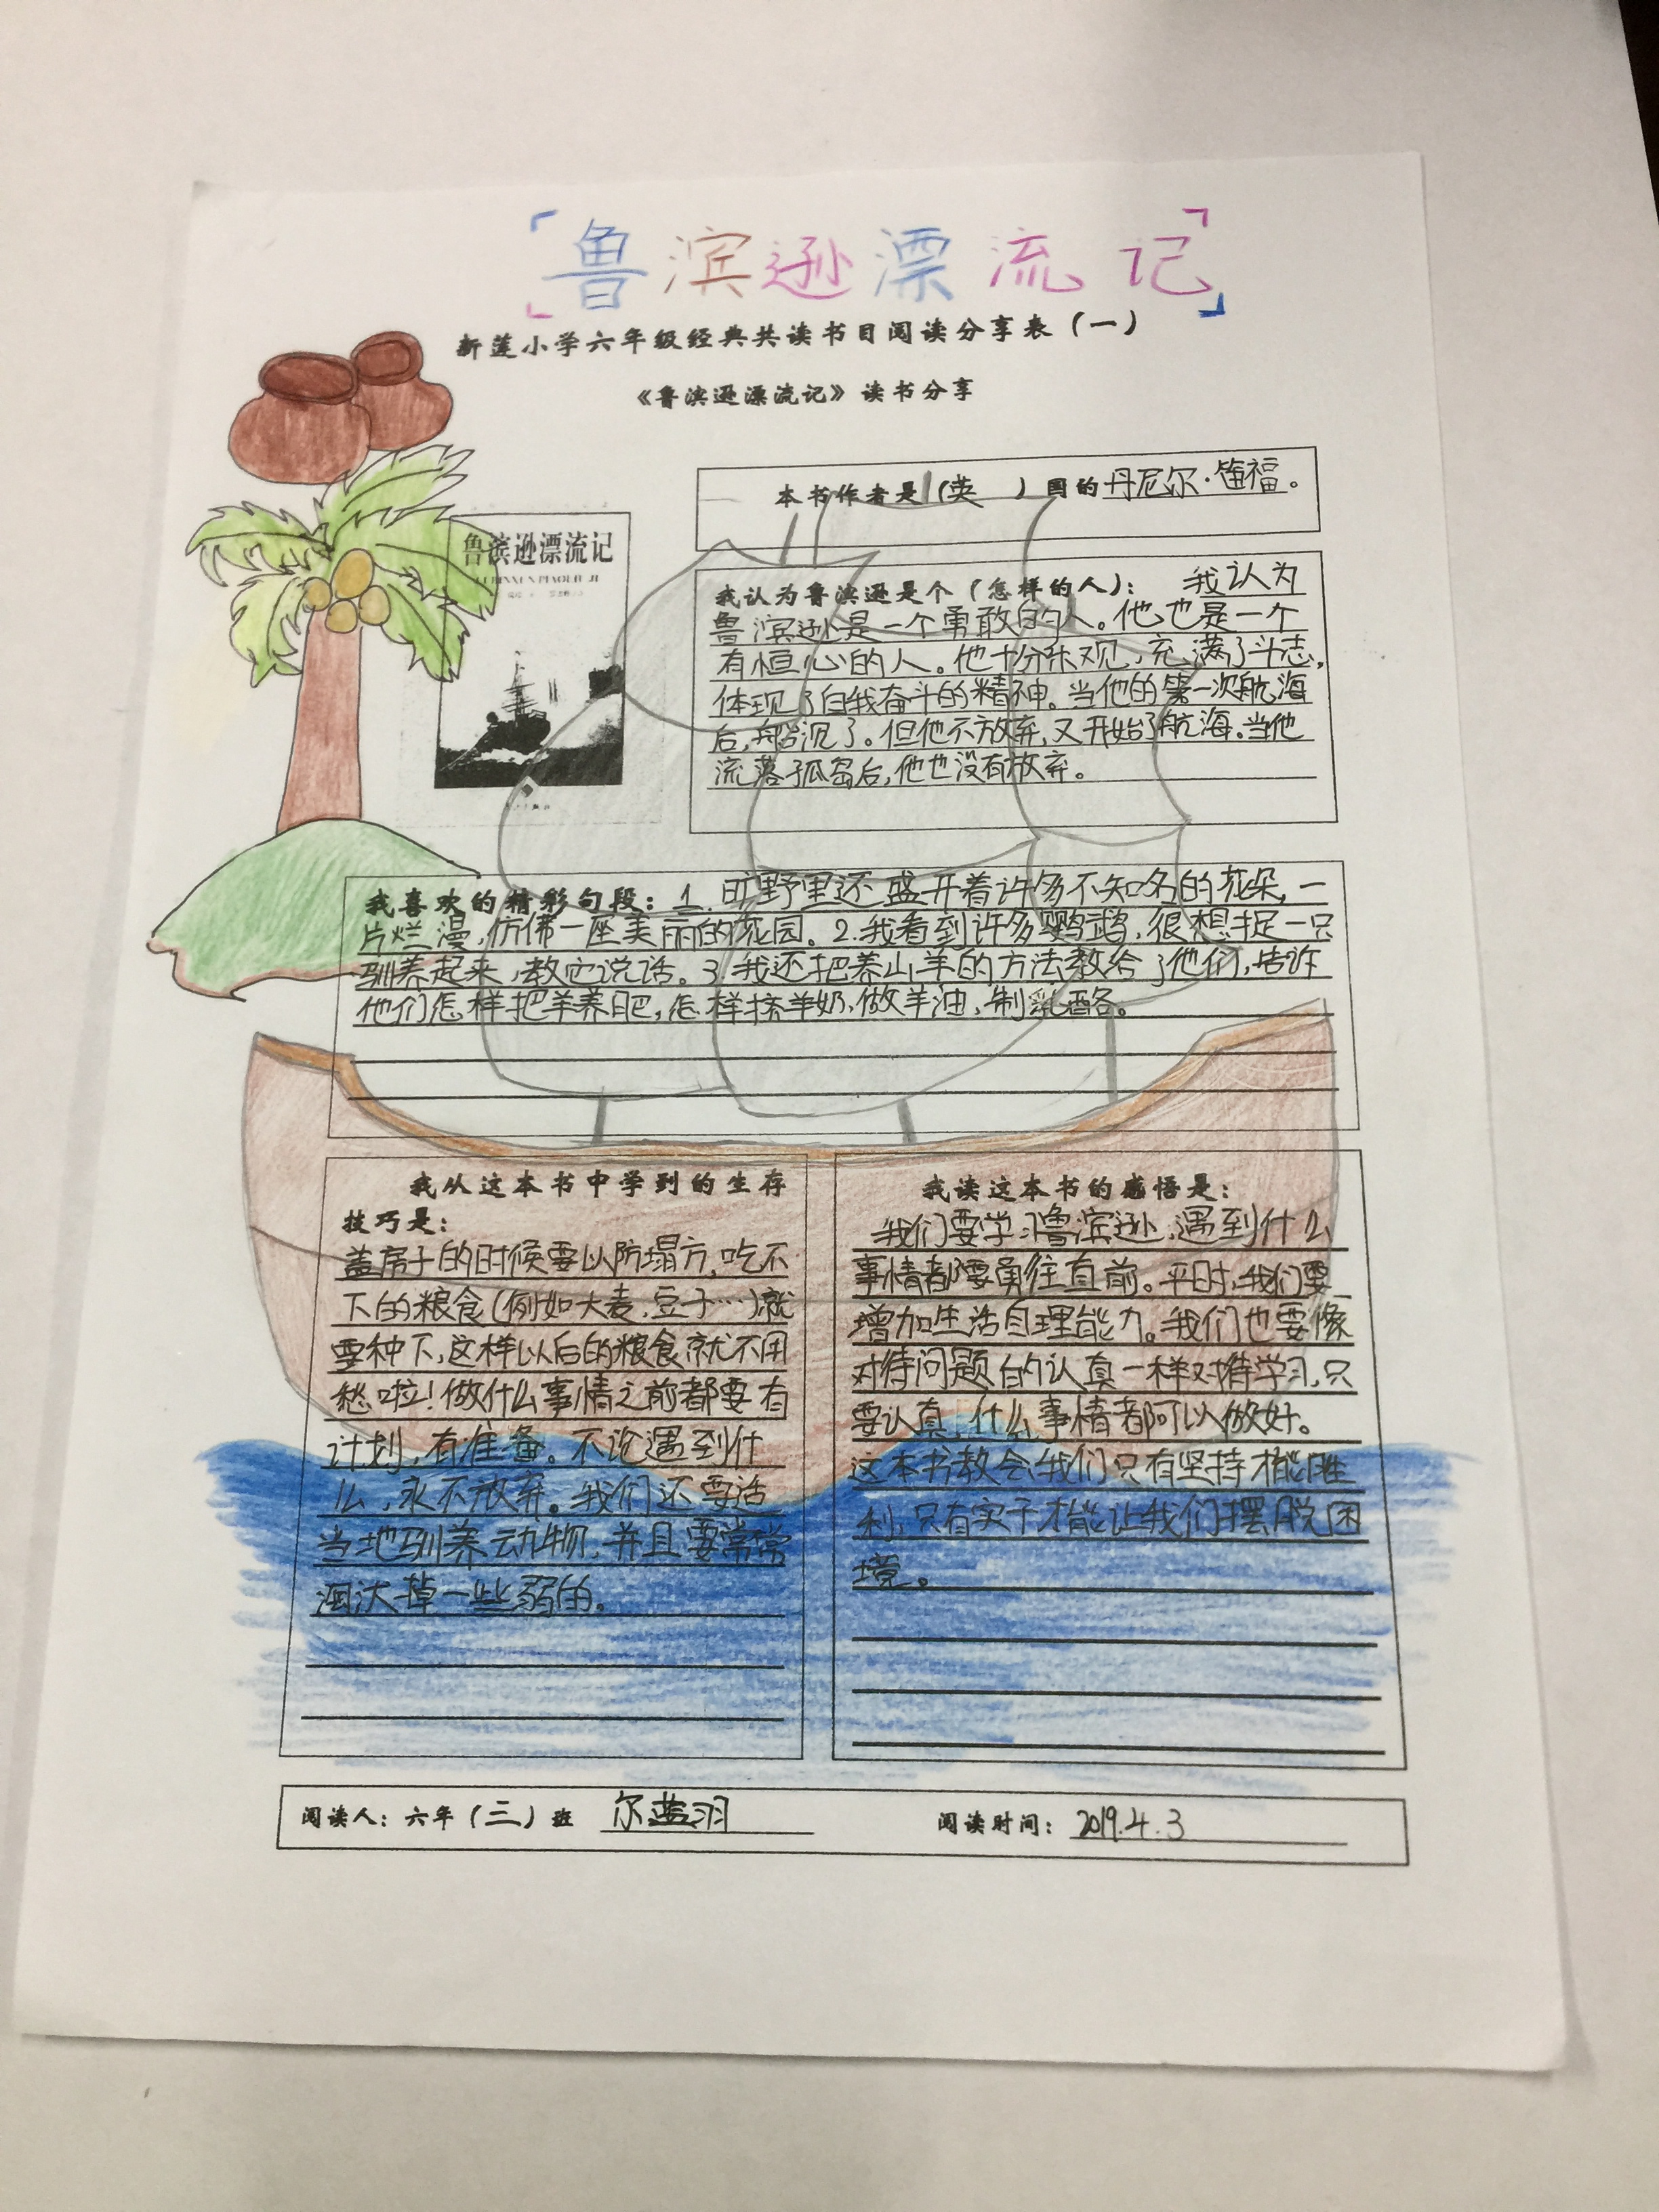 「鲁滨逊漂流记」
新莲小学六年级经典共读书目阅读分享表（一）
《鲁滨逊漂流记》读书分享
鲁滨逊漂流记
本书作者是（英 ）国的丹尼尔·笛福。
我认为鲁滨逊是个（怎样的人）： 我认为
鲁滨逊是一个勇敢的人。他也是一个
有恒心的人。他十分乐观，充满了斗志，
体现了自我奋斗的精神。当他的第一次航海
后，船沉了。但他不放弃，又开始了航海。当他
流落孤岛后，他也没有放弃。
我喜欢的精彩句段：1.旷野里还盛开着许多不知名的花朵，一
片烂漫，仿佛一座美丽的花园。2.我看到许多鹦鹉，很想捉一只
驯养起来，教它说话。3.我还把养山羊的方法教给了他们，告诉
他们怎样把羊养肥，怎样挤羊奶，做羊油，制乳酪。
我从这本书中学到的生存
技巧是：
盖房子的时候要以防塌方，吃不
下的粮食(例如大麦.豆子…)就
要种下，这样以后的粮食就不用
愁啦！做什么事情之前都要有
计划，有准备。不论遇到什
么，永不放弃。我们还要适
当地驯养动物，并且要常常
淘汰掉一些弱的。
我读这本书的感悟是：
我们要学习鲁滨逊，遇到什么
事情都要勇往直前。平时，我们要
增加生活自理能力。我们也要像
对待问题的认真一样对待学习，只
要认真，什么事情都可以做好。
这本书教会我们只有坚持才能胜
利，只有实干才能让我们摆脱困
境。
阅读人：六年（三）班 尔蓝羽
阅读时间：2019.4.3